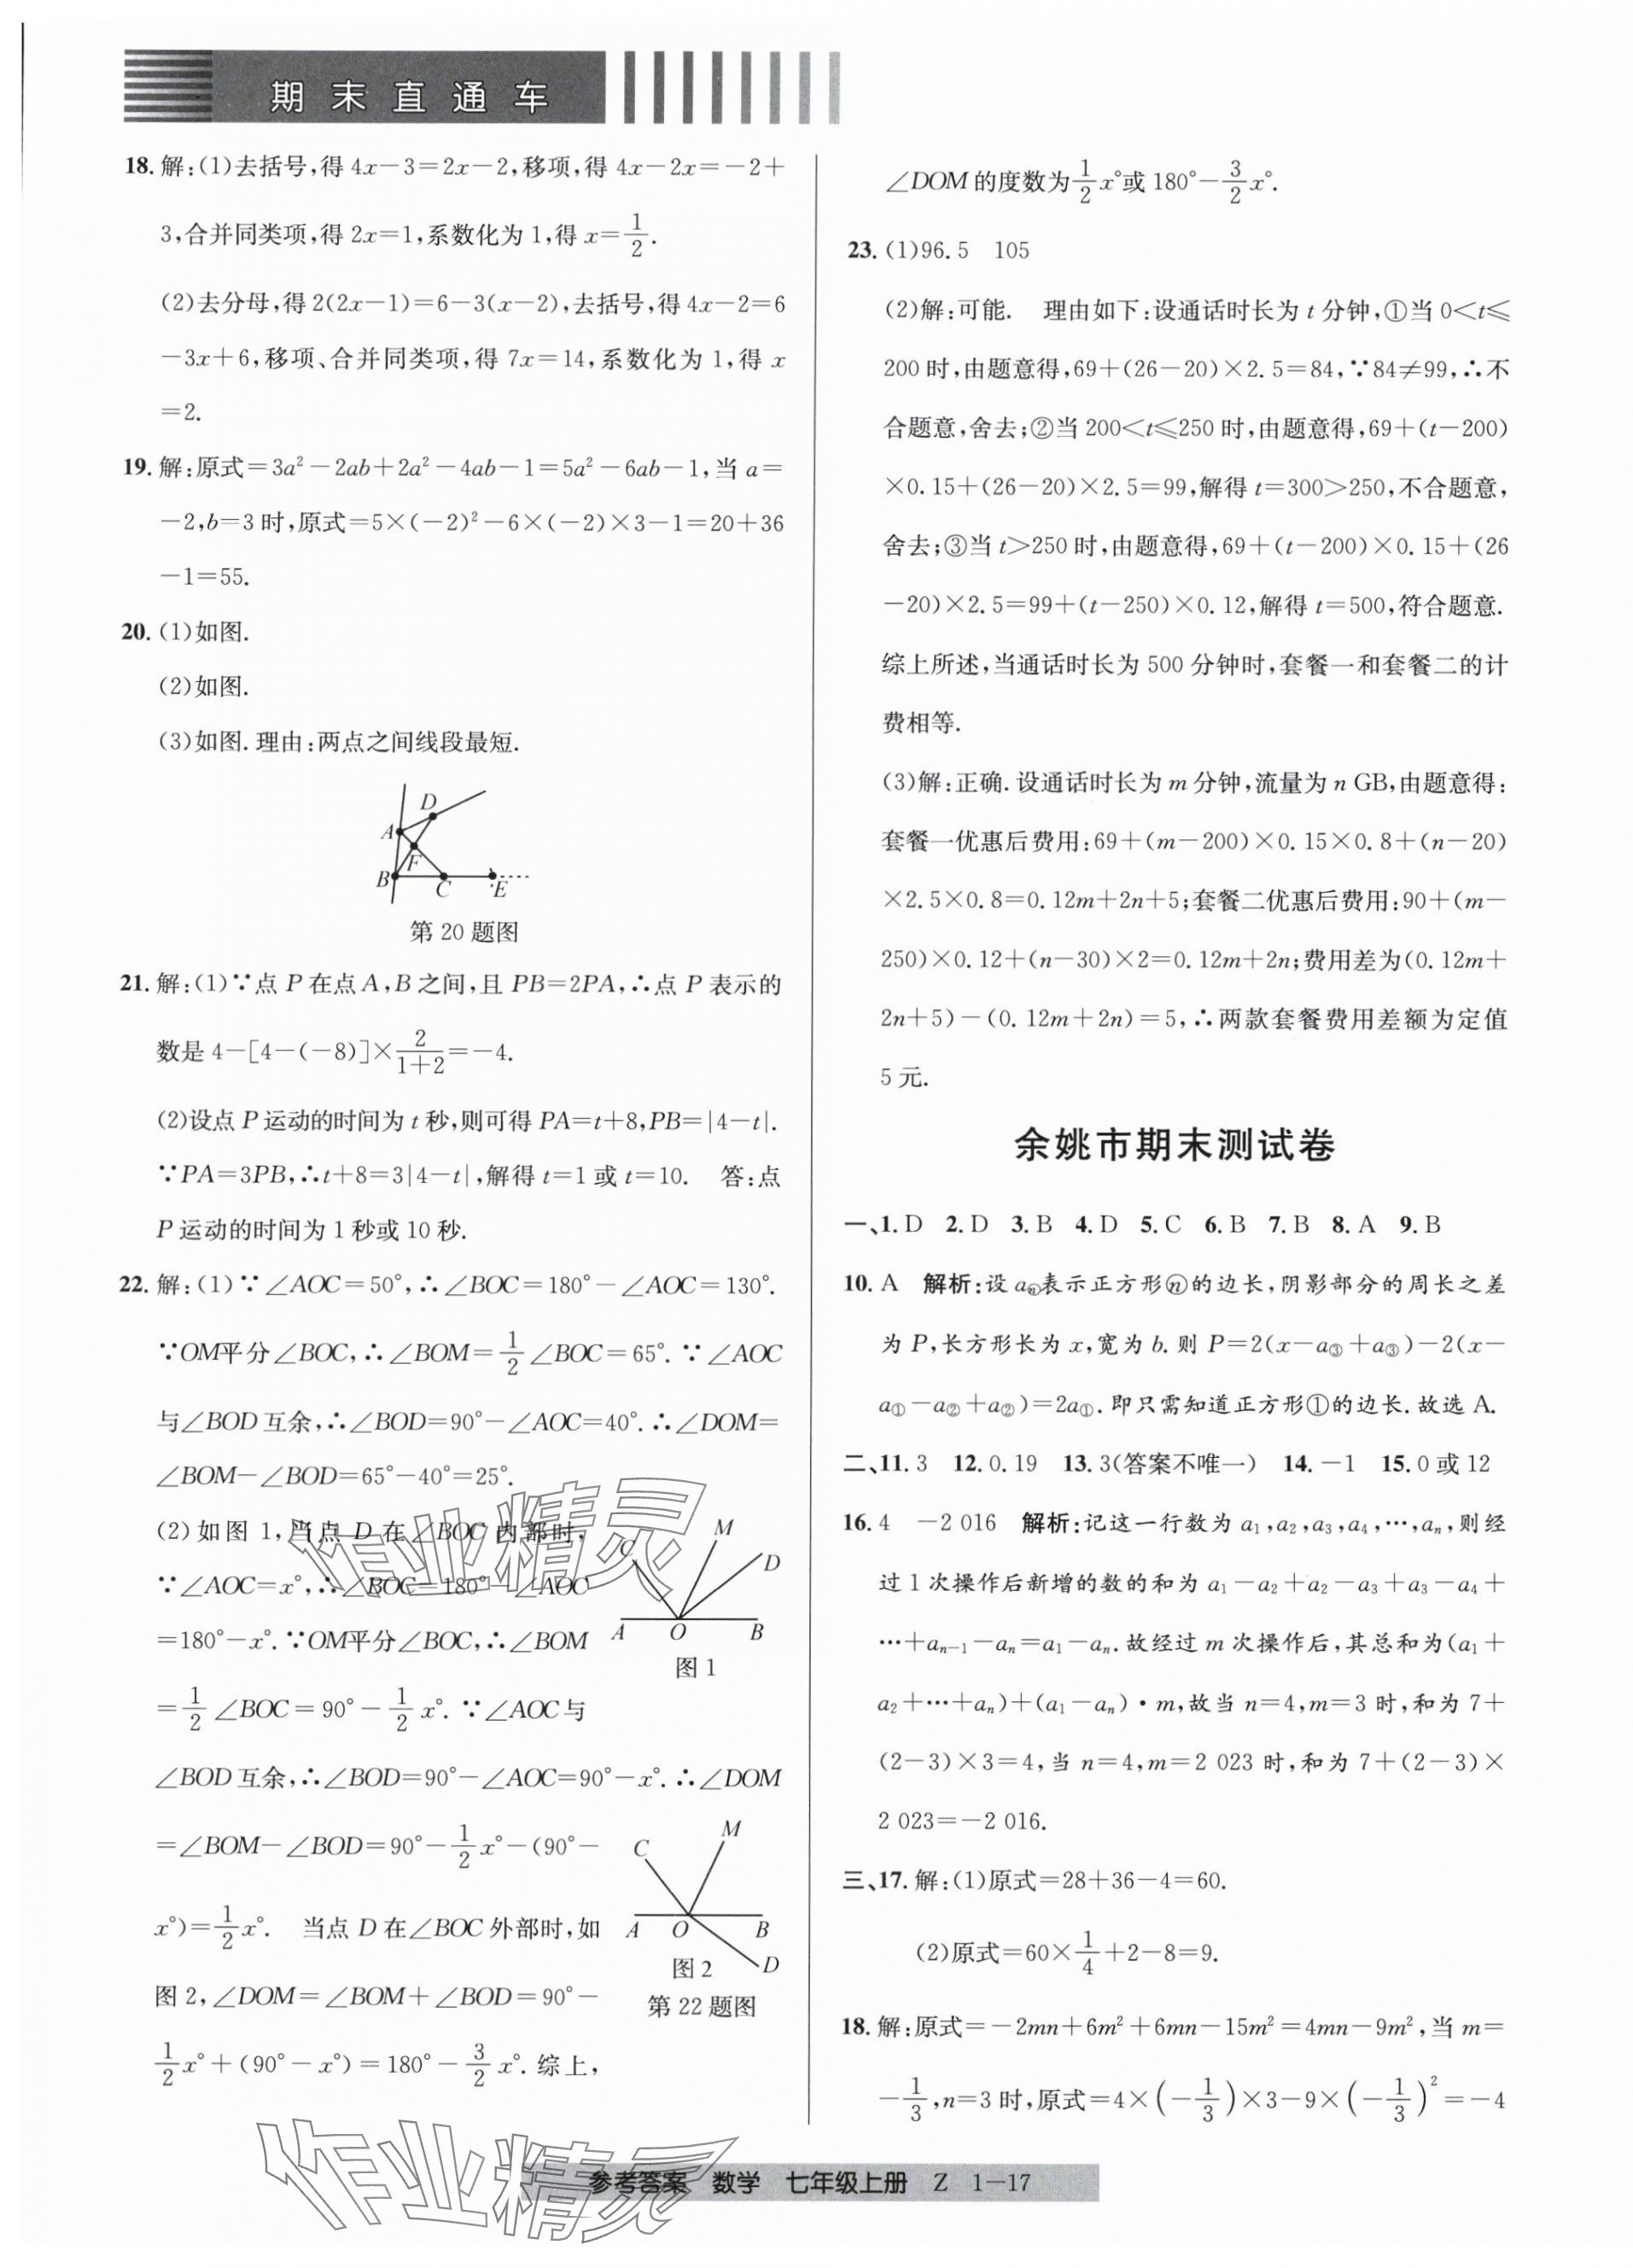 期末直通车
18. 解:(1)去括号,得 4x－3＝2x－2,移项,得 4x－2x＝－2＋
3,合并同类项,得 2x＝1,系数化为 1,得 x＝1/2.
(2)去分母,得 2(2x－1)＝6－3(x－2),去括号,得 4x－2＝6
－3x＋6,移项、合并同类项,得 7x＝14,系数化为 1,得 x
＝2.
19. 解:原式＝3a²－2ab＋2a²－4ab－1＝5a²－6ab－1,当 a＝
－2,b＝3 时,原式＝5×(－2)²－6×(－2)×3－1＝20＋36
－1＝55.
20. (1)如图.
(2)如图.
(3)如图.理由:两点之间线段最短.
D
A
F
B
C
E
第 20 题图
21. 解:(1)∵点 P 在点 A,B 之间,且 PB＝2PA,∴点 P 表示的
数是 4－[4－(－8)]×2/(1＋2)＝－4.
(2)设点 P 运动的时间为 t 秒,则可得 PA＝t＋8,PB＝|4－t|.
∵PA＝3PB,∴t＋8＝3|4－t|,解得 t＝1 或 t＝10. 答:点
P 运动的时间为 1 秒或 10 秒.
22. 解:(1)∵∠AOC＝50°,∴∠BOC＝180°－∠AOC＝130°.
∵OM平分∠BOC,∴∠BOM＝1/2∠BOC＝65°.∵∠AOC
与∠BOD 互余,∴∠BOD＝90°－∠AOC＝40°.∴∠DOM＝
∠BOM－∠BOD＝65°－40°＝25°.
(2)如图 1,当点 D 在∠BOC 内部时,
∵∠AOC＝x°,∴∠BOC＝180°－∠AOC
＝180°－x°.∵OM平分∠BOC,∴∠BOM
＝1/2∠BOC＝90°－1/2x°.∵∠AOC与
C
M
D
A
O
B
图 1
∠BOD 互余,∴∠BOD＝90°－∠AOC＝90°－x°.∴∠DOM
＝∠BOM－∠BOD＝90°－1/2x°－(90°－
x°)＝1/2x°. 当点 D 在∠BOC 外部时,如
图 2,∠DOM＝∠BOM＋∠BOD＝90°－
1/2x°＋(90°－x°)＝180°－3/2x°.综上,
C
M
A
O
B
D
图 2
第 22 题图
∠DOM 的度数为1/2x°或 180°－3/2x°.
23. (1)96.5 105
(2)解:可能. 理由如下:设通话时长为 t 分钟,①当 0＜t≤
200 时,由题意得,69＋(26－20)×2.5＝84,∵84≠99,∴不
合题意,舍去;②当 200＜t≤250 时,由题意得,69＋(t－200)
×0.15＋(26－20)×2.5＝99,解得 t＝300＞250,不合题意,
舍去;③当 t＞250 时,由题意得,69＋(t－200)×0.15＋(26
－20)×2.5＝99＋(t－250)×0.12,解得 t＝500,符合题意.
综上所述,当通话时长为 500 分钟时,套餐一和套餐二的计
费相等.
(3)解:正确.设通话时长为 m 分钟,流量为 n GB,由题意得:
套餐一优惠后费用:69＋(m－200)×0.15×0.8＋(n－20)
×2.5×0.8＝0.12m＋2n＋5;套餐二优惠后费用:90＋(m－
250)×0.12＋(n－30)×2＝0.12m＋2n;费用差为(0.12m＋
2n＋5)－(0.12m＋2n)＝5,∴两款套餐费用差额为定值
5 元.
余姚市期末测试卷
一、1. D 2. D 3. B 4. D 5. C 6. B 7. B 8. A 9. B
10. A 解析:设 a_ⓝ表示正方形ⓝ的边长,阴影部分的周长之差
为 P,长方形长为 x,宽为 b.则 P＝2(x－a_③＋a_③)－2(x－
a_①－a_②＋a_②)＝2a_①.即只需知道正方形①的边长.故选 A.
二、11. 3 12. 0.19 13. 3(答案不唯一) 14. －1 15. 0 或 12
16. 4 －2 016 解析:记这一行数为 a₁,a₂,a₃,a₄,…,aₙ,则经
过 1 次操作后新增的数的和为 a₁－a₂＋a₂－a₃＋a₃－a₄＋
…＋aₙ₋₁－aₙ＝a₁－aₙ.故经过 m 次操作后,其总和为(a₁＋
a₂＋…＋aₙ)＋(a₁－aₙ)·m,故当 n＝4,m＝3 时,和为 7＋
(2－3)×3＝4,当 n＝4,m＝2 023 时,和为 7＋(2－3)×
2 023＝－2 016.
三、17. 解:(1)原式＝28＋36－4＝60.
(2)原式＝60×1/4＋2－8＝9.
18. 解:原式＝－2mn＋6m²＋6mn－15m²＝4mn－9m²,当 m＝
－1/3,n＝3 时,原式＝4×(－1/3)×3－9×(－1/3)²＝－4
作业精灵
作业精灵
参考答案 数学 七年级上册 Z 1－17